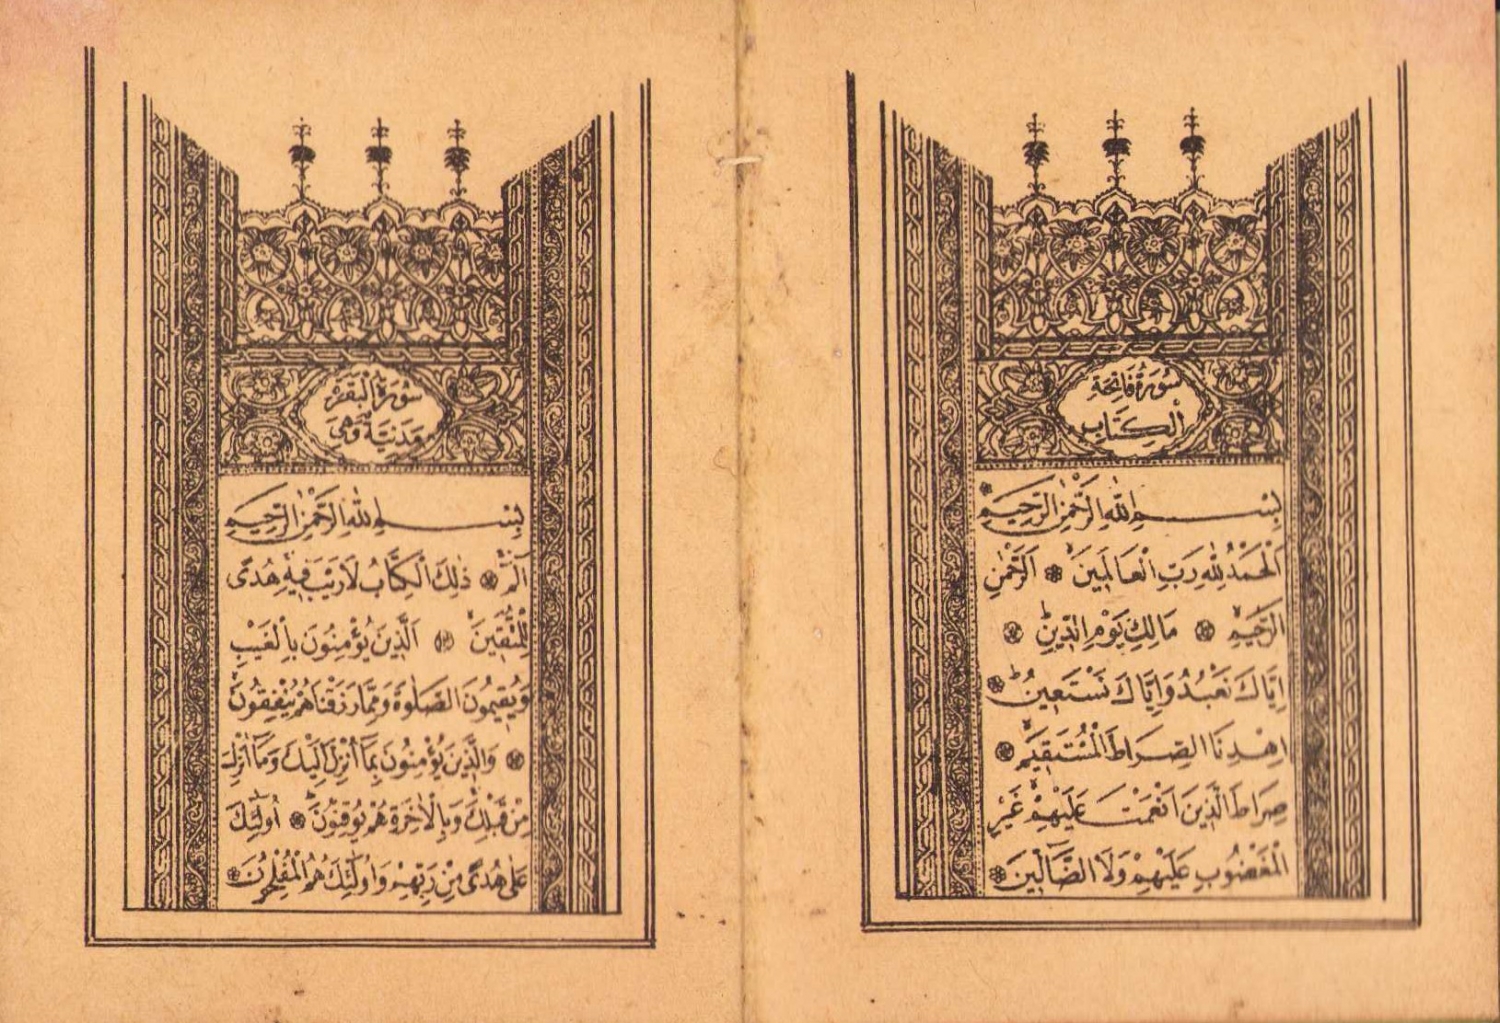 سُورَةُ فَاتِحَةِ
الْكِتَابِ
بِسْمِ اللّٰهِ الرَّحْمٰنِ الرَّحِيمِ
اَلْحَمْدُ لِلّٰهِ رَبِّ الْعَالَمِينَ ۞ اَلرَّحْمٰنِ
الرَّحِيمِ ۞ مَالِكِ يَوْمِ الدِّينِ ۞
اِيَّاكَ نَعْبُدُ وَاِيَّاكَ نَسْتَعِينُ ۞
اِهْدِنَا الصِّرَاطَ الْمُسْتَقِيمَ ۞
صِرَاطَ الَّذِينَ اَنْعَمْتَ عَلَيْهِمْ غَيْرِ
الْمَغْضُوبِ عَلَيْهِمْ وَلَا الضَّالِّينَ ۞
سُورَةُ الْبَقَرَةِ
مَدَنِيَّةٌ وَهِيَ
بِسْمِ اللّٰهِ الرَّحْمٰنِ الرَّحِيمِ
الٓمٓ ۞ ذٰلِكَ الْكِتَابُ لَا رَيْبَ فِيهِ هُدًى
لِلْمُتَّقِينَ ۞ اَلَّذِينَ يُؤْمِنُونَ بِالْغَيْبِ
وَيُقِيمُونَ الصَّلٰوةَ وَمِمَّا رَزَقْنَاهُمْ يُنْفِقُونَ
۞ وَالَّذِينَ يُؤْمِنُونَ بِمَا اُنْزِلَ اِلَيْكَ وَمَا اُنْزِلَ
مِنْ قَبْلِكَ وَبِالْاٰخِرَةِ هُمْ يُوقِنُونَ ۞ اُولٰئِكَ
عَلٰى هُدًى مِنْ رَبِّهِمْ وَاُولٰئِكَ هُمُ الْمُفْلِحُونَ ۞